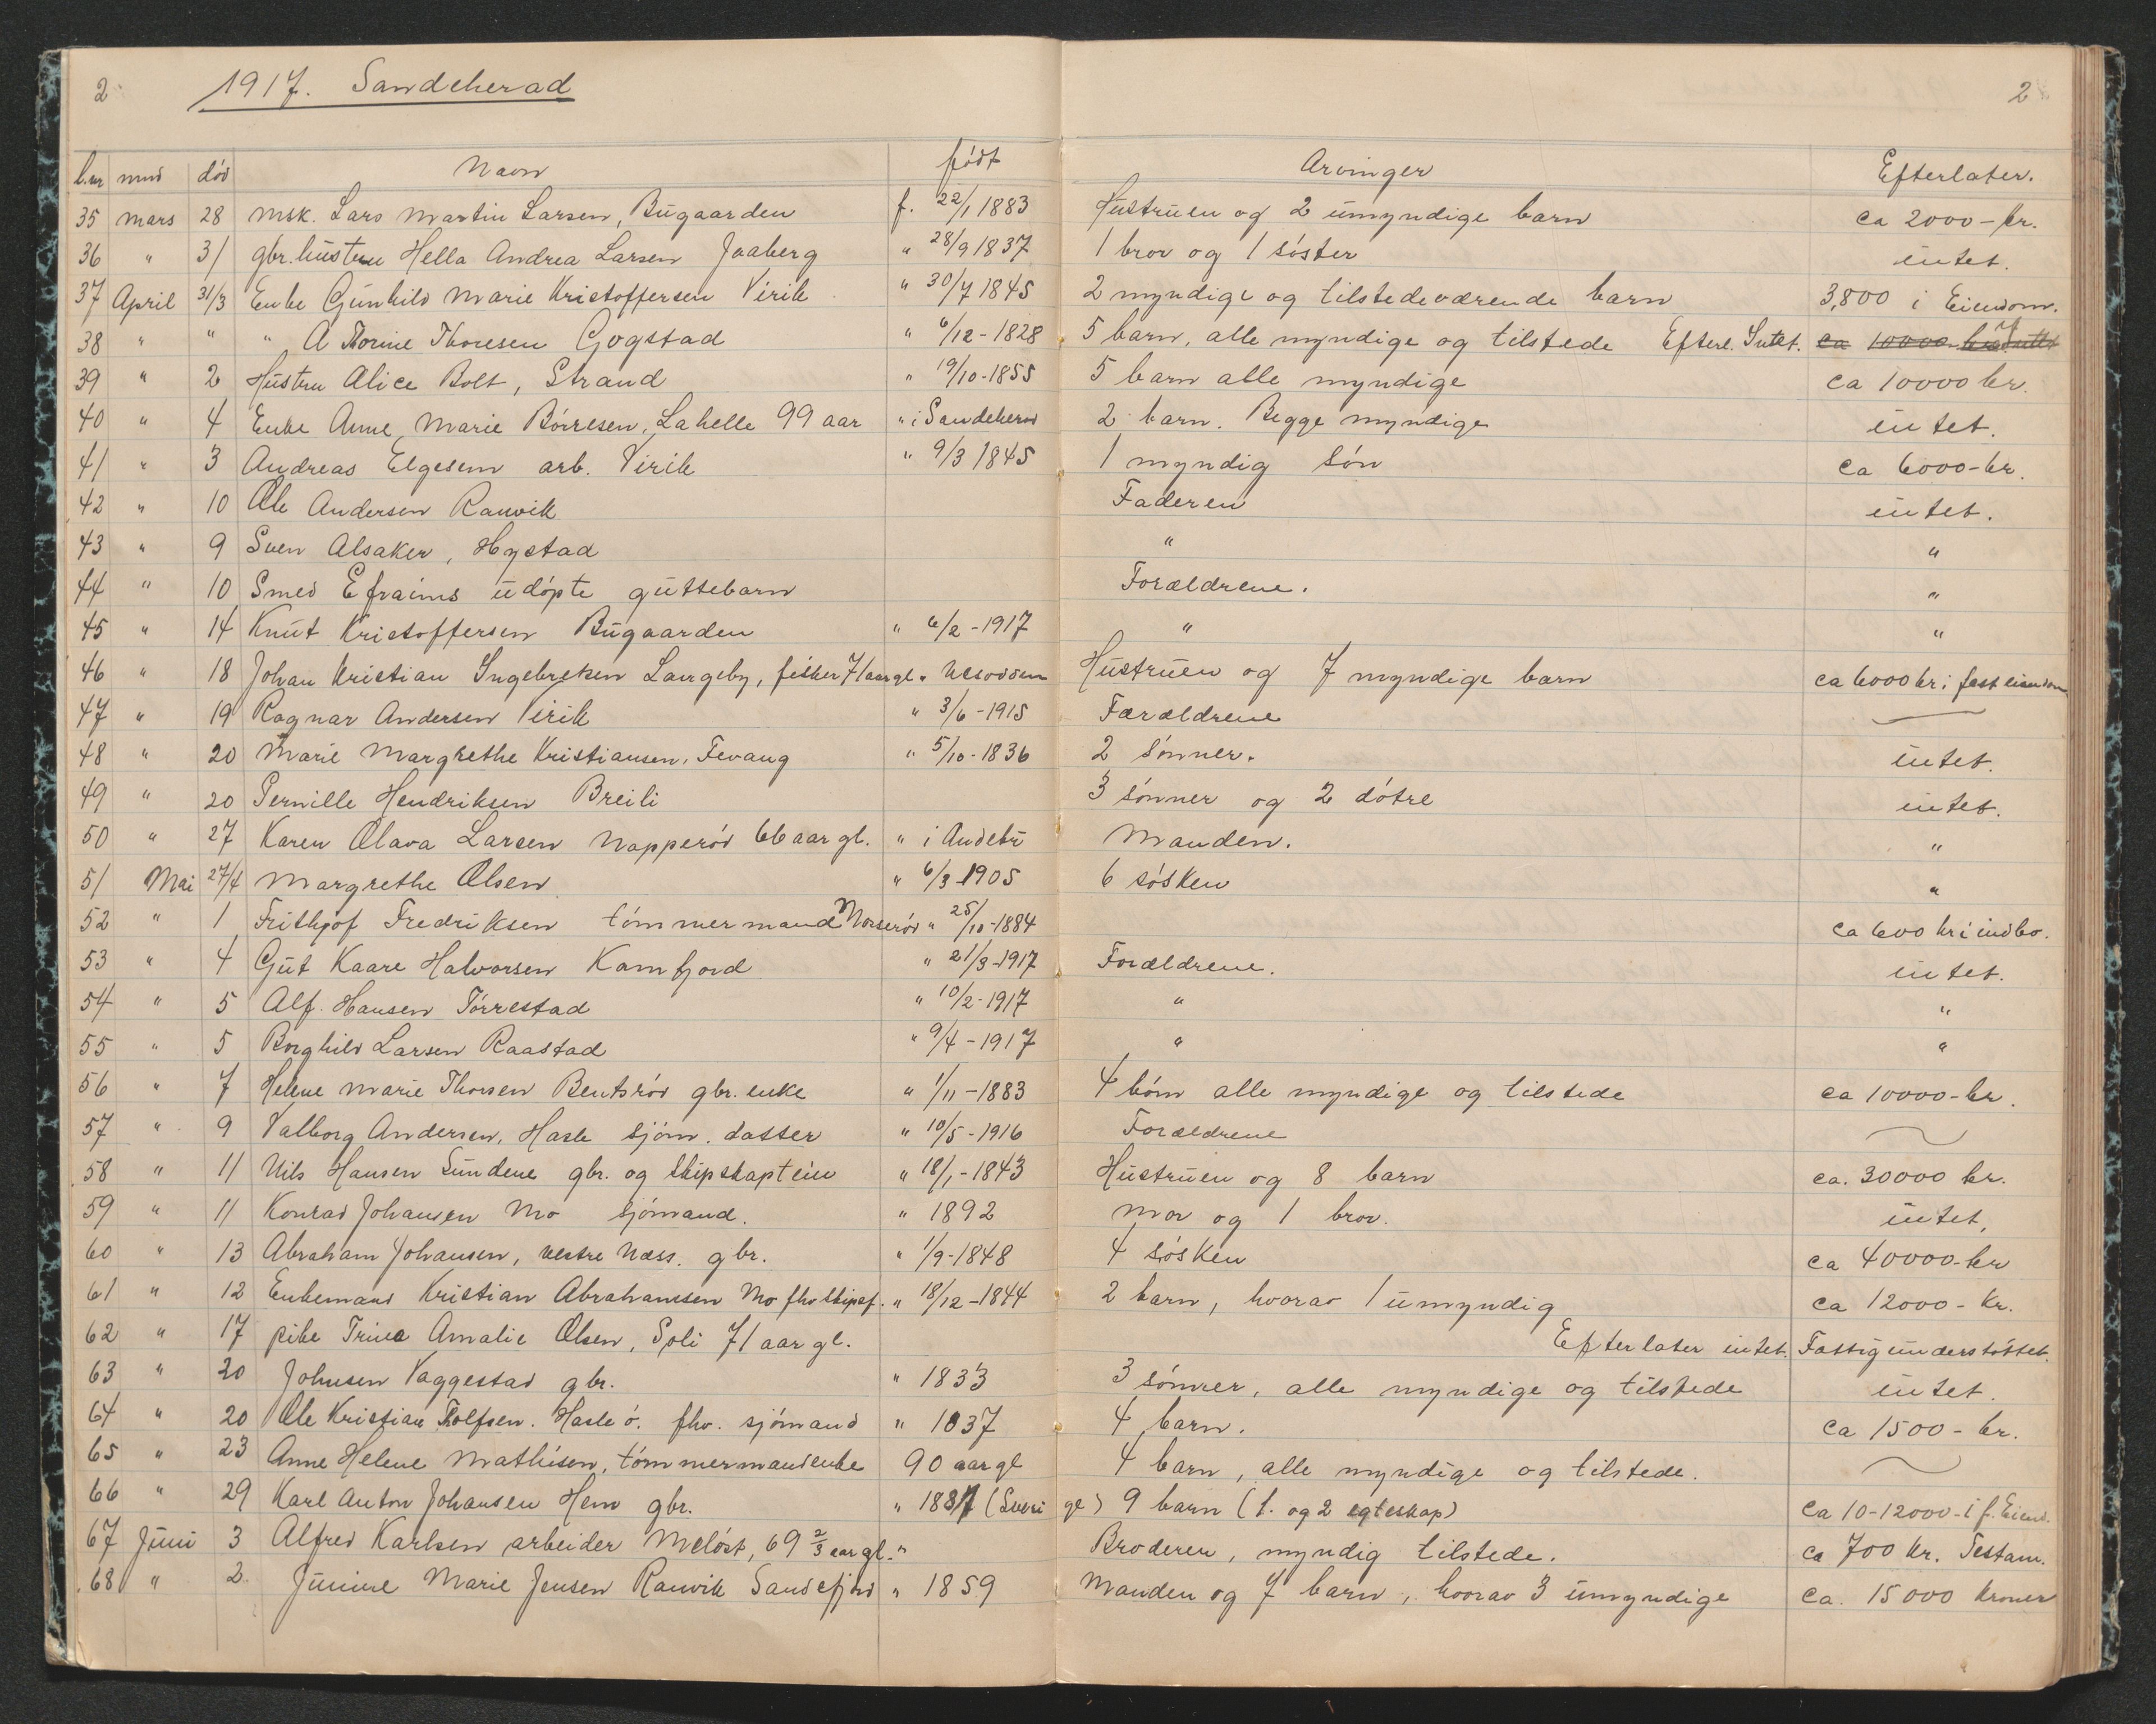 2 1917. Sandeherad 2
l.nr mnd død Navn født Arvinger Efterlater.
35 Mars 28 Msk. Lars Martin Larsen, Bugaarden f. 22/1 1883 Hustruen og 2 umyndige barn ca 2000 - kr.
36 " 31 gbr. hustru Hella Andrea Larsen Jaaberg " 28/9 1837 1 bror og 1 søster intet.
37 April 31/3 Enke Gunhild Marie Kristoffersen Virik " 30/7 1845 2 myndige og tilstedeværende barn 3,800 i Eiendom.
38 " " " A Thorine Thoresen Gogstad " 6/12 - 1828 5 barn, alle myndige og tilstede Efterl. Intet. ca 10000
39 " 2 Hustru Alice Bolt, Strand " 19/10 - 1855 5 barn alle myndige ca 10000 kr.
40 " 4 Enke Anne Marie Børresen, Lahelle 99 aar " i Sandeherd 2 barn. Begge myndige intet.
41 " 3 Andreas Elgesem arb. Virik " 9/3 1845 1 myndig søn ca 6000 - kr.
42 " 10 Ole Andersen Ranvik Faderen intet.
43 " 9 Sven Alsaker, Hystad " "
44 " 10 Smed Efraims udøpte guttebarn Forældrene. "
45 " 14 Knut Kristoffersen Bugaarden " 6/2 - 1917 " "
46 " 18 Johan Kristian Ingebretsen Langeby, fisker 71 aar gl. " Nesodden Hustruen og 7 myndige barn ca 6000 kr i fast eiendom
47 " 19 Ragnar Andersen Virik " 3/6 - 1915 Forældrene
48 " 20 Marie Margrethe Kristiansen, Fevang " 5/10 - 1836 2 sønner. intet.
49 " 20 Pernille Hendriksen Breili 3 sønner og 2 døtre intet.
50 " 27 Karen Olava Larsen Napperød 66 aar gl. " i Andebu Manden. "
51 Mai 27/4 Margrethe Olsen " 6/3 - 1905 6 søsken "
52 " 1 Frithjof Fredriksen tømmermand Norserød " 25/10 - 1884 ca 600 kr i indbo.
53 " 4 Gut Kaare Halvorsen Kamfjord " 21/3 - 1917 Forældrene. intet.
54 " 5 Alf. Hansen Tørrestad " 10/2 - 1917 " "
55 " 5 Borghild Larsen Raastad " 9/4 - 1917 " "
56 " 7 Helene Marie Thorsen Bentsrød gbr. enke " 1/11 - 1883 4 børn alle myndige og tilstede ca 10000 - kr.
57 " 9 Valborg Andersen, Hasle sjøm. datter " 10/5 - 1916 Forældrene
58 " 11 Nils Hansen Sundene gbr. og skipskaptein " 18/1 - 1843 Hustruen og 8 barn ca. 30000 kr.
59 " 11 Konrad Johansen Mo sjømand. " 1892 Mor og 1 bror. intet,
60 " 13 Abraham Johansen, vestre Næss. gbr. " 1/9 - 1848 4 søsken ca 40000 - kr
61 " 12 Enkemand Kristian Abrahamssen Mo fhv skipsf. " 18/12 - 1844 2 barn, hvorav 1 umyndig ca 12000 - Kr.
62 " 17 pike Trine Amalie Olsen, Soli 71 aar gl. Efterlater intet. Fattigunderstøttet.
63 " 20 Johnsen Vaggestad gbr. " 1833 3 sønner, alle myndige og tilstede intet.
64 " 20 Ole Kristian Rolfsen. Hasle ø. fhv. sjømand " 1837 4 barn. ca 1500 - kr.
65 " 23 Anne Helene Mathisen, tømmermandenke 90 aar gl 4 barn, alle myndige og tilstede.
66 " 29 Karl Anton Johansen Hem gbr. " 1837 (Sverige) 9 barn (1. og 2 egteskap) ca 10-12000 - i f. Eiend.
67 Juni 3 Alfred Karlsen arbeider Meløst, 69 2/3 aar gl. " Broderen, myndig tilstede. ca 700 kr. Testam.
68 " 2 Junine Marie Jensen Ranvik Sandefjord " 1859 Manden og 7 barn, hvorav 3 umyndige ca. 15000 kroner